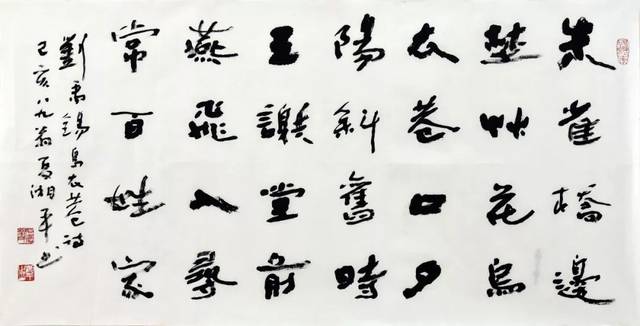 朱雀橋邊
埜艸花烏
衣巷口夕
陽斜舊時
王謝堂前
燕飛入尋
常百姓家
劉禹錫烏衣巷詩
己亥八九翁夏湘平書